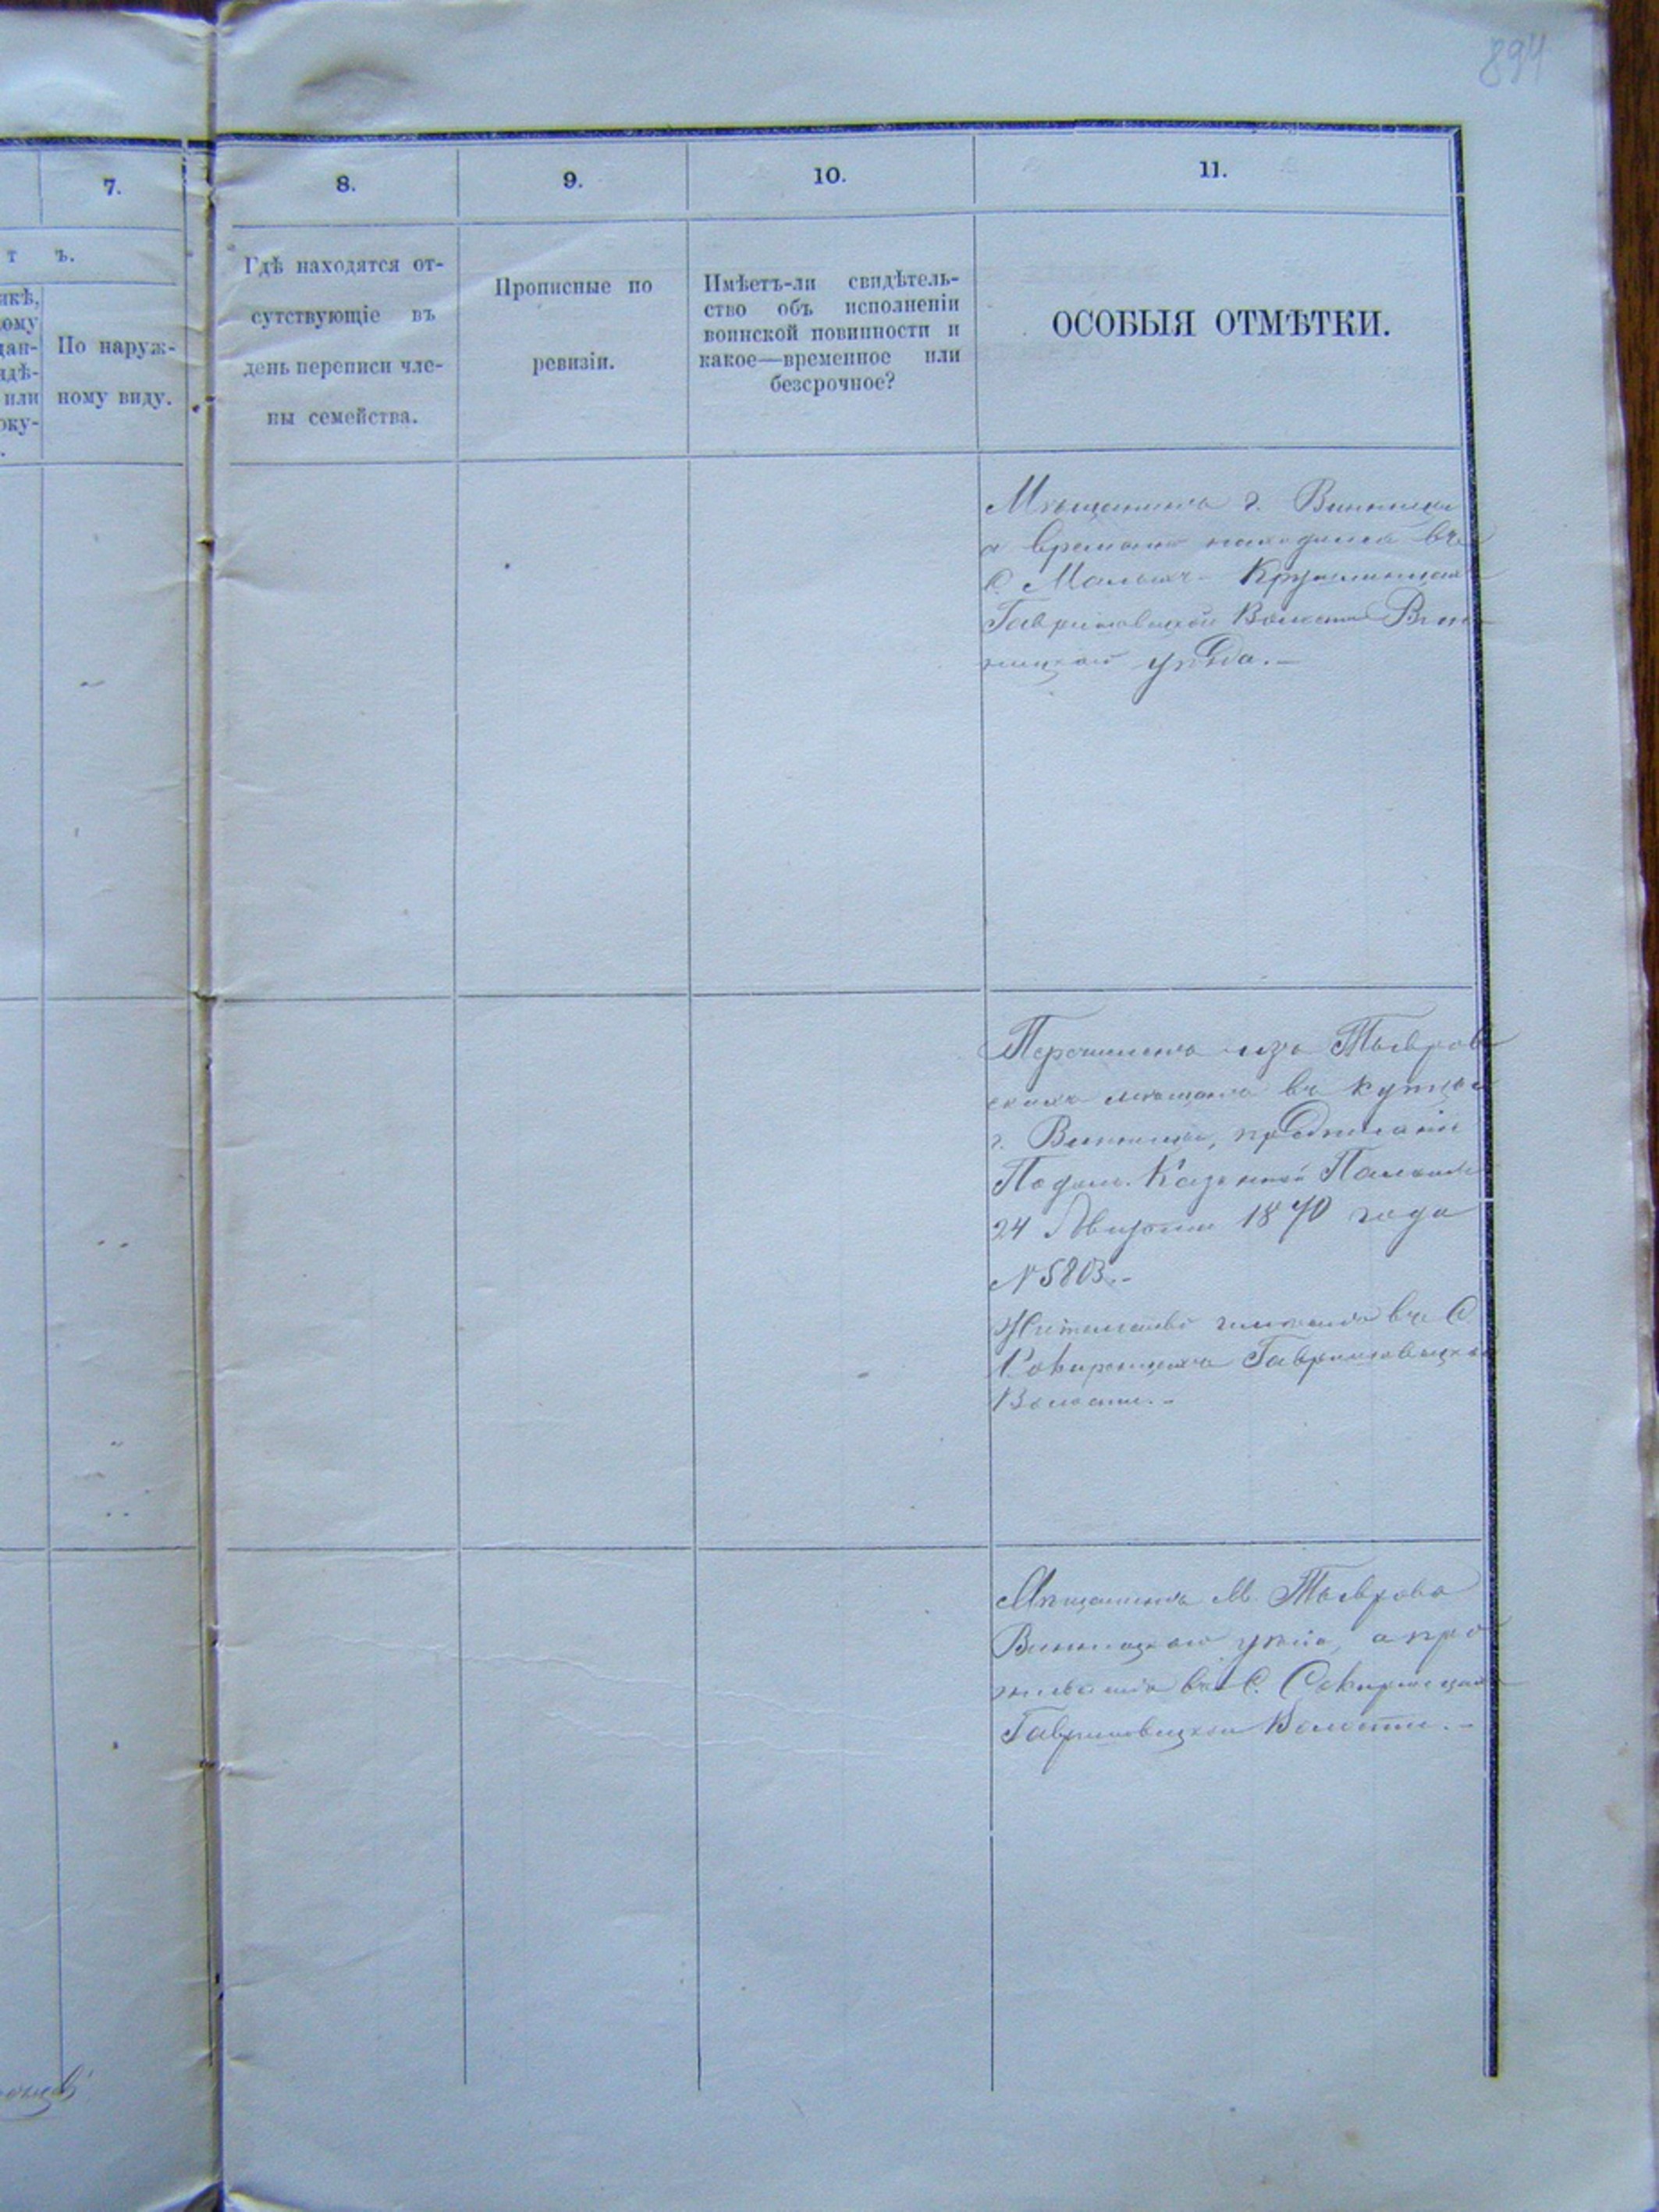 894
7.
8.
9.
10.
11.
т ъ.
По наруж-
ному виду.
Гдѣ находятся от-
сутствующіе въ
день переписи чле-
ны семейства.
Прописные по
ревизіи.
Имѣетъ-ли свидѣтель-
ство объ исполненіи
воинской повинности и
какое—временное или
безсрочное?
ОСОБЫЯ ОТМѢТКИ.
Мѣщанинъ г. Винницы
а временно находится въ
С. Малыхъ-Крушлинцахъ
Гавришовецкой Волости Вин-
ницкаго уѣзда.—
Перечисленъ изъ Тывров
скихъ мѣщанъ въ купцы
г. Винницы, предписаніе
Подол. Казенной Палаты
24 Августа 1870 года
№ 5803.-
Жительство имѣетъ въ С.
Сокиринцахъ Гавришовецкой
Волости.-
Мѣщанинъ М. Тыврова
Винницкаго уѣзда, а про
живаетъ въ С. Сокиринцахъ
Гавришовецкой Волости.-